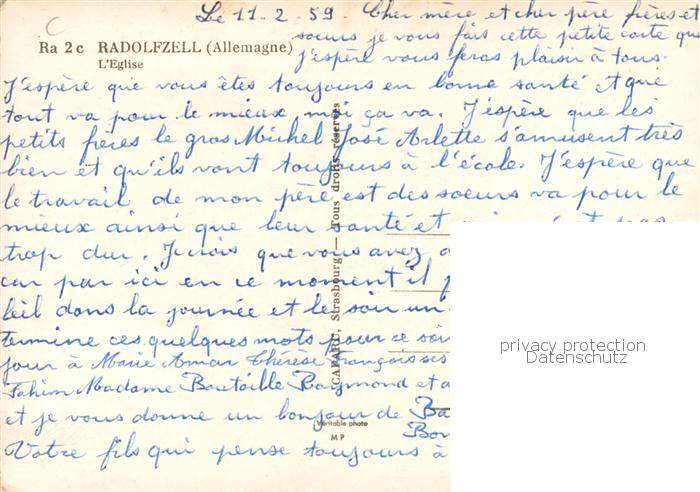 C
Le 11-2-59. Cher mère et cher père frères et
Ra 2 c RADOLFZELL (Allemagne)
L'Eglise
soeurs je vous fais cette petite carte que
j'espère vous feras plaisir à tous.
J'espère que vous êtes toujours en bonne santé et que
tout va pour le mieux, moi ça va. J'espère que les
petits frères le gros Michel José Arlette s'amusent très
bien et qu'ils vont toujours à l'école. J'espère que
le travail de mon père est des soeurs va pour le
mieux ainsi que leur santé et
trop dur. Je crois que vous avez
car par ici en ce moment il
leil dans la journée et le soir un
termine ces quelques mots pour ce soir
jour à Marie Amar Thérèse Françoise
Fahim Madame Boutaille Raymond et
et je vous donne un bonjour de Ba
Bon
Votre fils qui pense toujours à
CAP & RD, Strasbourg — Tous droits réservés
Véritable photo
M P
privacy protection
Datenschutz